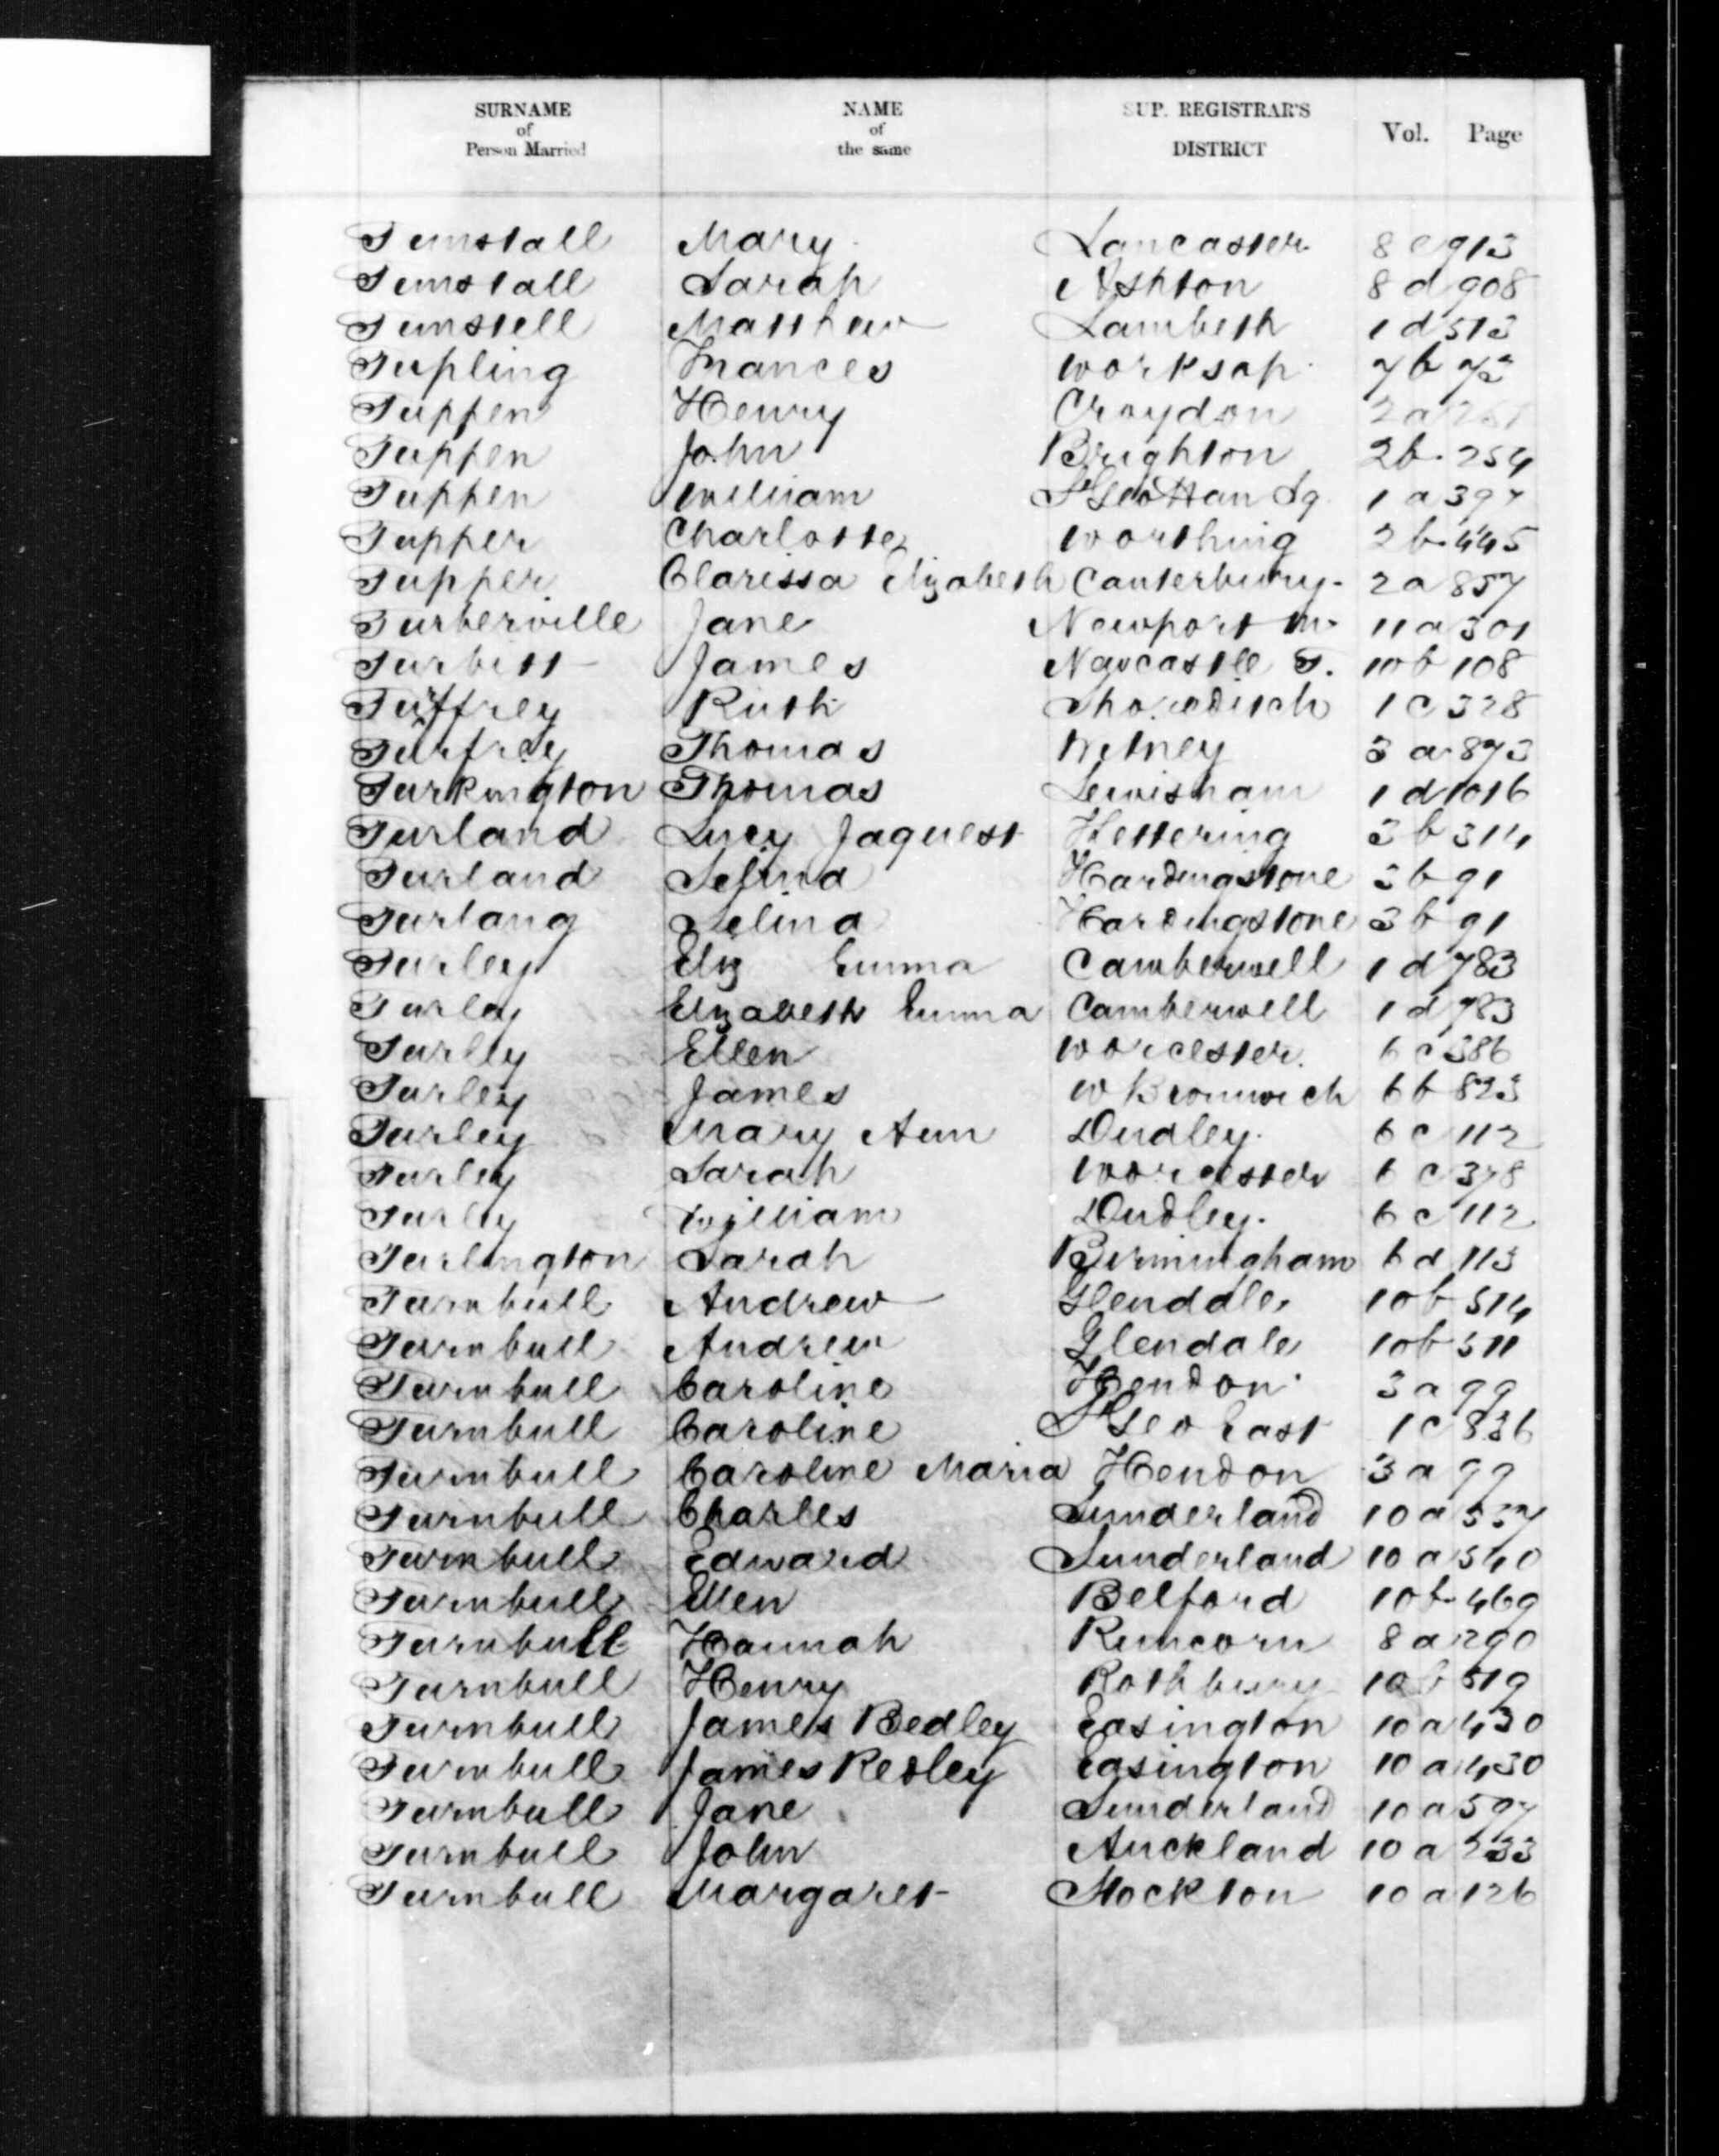 SURNAME of Person Married NAME of the same SUP. REGISTRAR'S DISTRICT Vol. Page
Tunstall Mary Lancaster 8 e 913
Tunstall Sarah Ashton 8 d 908
Tunstell Matthew Lambeth 1 d 513
Tupling Frances Worksop 7b 72
Tuppen Henry Croydon 2a
Tuppen John Brighton 2b 254
Tuppen William St Geo Han Sq 1 a 397
Tupper Charlotte Worthing 2b 445
Tupper Clarissa Elizabeth Canterbury 2a 857
Turberville Jane Newport M. 11a 301
Turbitt James Newcastle T. 10b 108
Tuffrey Ruth Shoreditch 1 c 328
Turfrey Thomas Witney 3 a 873
Turkington Thomas Lewisham 1 d 1016
Turland Lucy Jaquest Kettering 3 b 314
Turland Selina Hardingstone 3b 91
Turlang Selina Hardingstone 3 b 91
Turley Eliz Emma Camberwell 1 d 783
Turley Elizabeth Emma Camberwell 1 d 783
Turley Ellen Worcester 6 c 386
Turley James W Bromwich 6b 823
Turley Mary Ann Dudley 6 c 112
Turley Sarah Worcester 6 c 378
Turley William Dudley 6 c 112
Turlington Sarah Birmingham 6 d 113
Turnbull Andrew Glendale 10b 514
Turnbull Andrew Glendale 10b 511
Turnbull Caroline Hendon 3 a 99
Turnbull Caroline St Geo East 1 c 836
Turnbull Caroline Maria Hendon 3 a 99
Turnbull Charles Sunderland 10 a 537
Turnbull Edward Sunderland 10 a 540
Turnbull Ellen Belford 10b 469
Turnbull Hannah Runcorn 8 a 290
Turnbull Henry Rothbury 10b 519
Turnbull James Bedley Easington 10 a 430
Turnbull James Redley Easington 10 a 430
Turnbull Jane Sunderland 10 a 597
Turnbull John Auckland 10 a 233
Turnbull Margaret Stockton 10 a 126